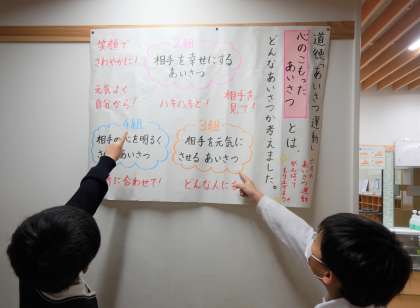 道徳「あいさつ運動」
心のこもった
あいさつ
とは、
どんなあいさつか考えました。
あいさつ運動
2組
相手を幸せにする
あいさつ
笑顔で
さわやかに!
元気よく
自分から!
ハキハキと!
相手を
見て!
3組
相手を元気に
させる あいさつ
どんな人にも
4組
相手の心を明るく
あいさつ
に合わせて!